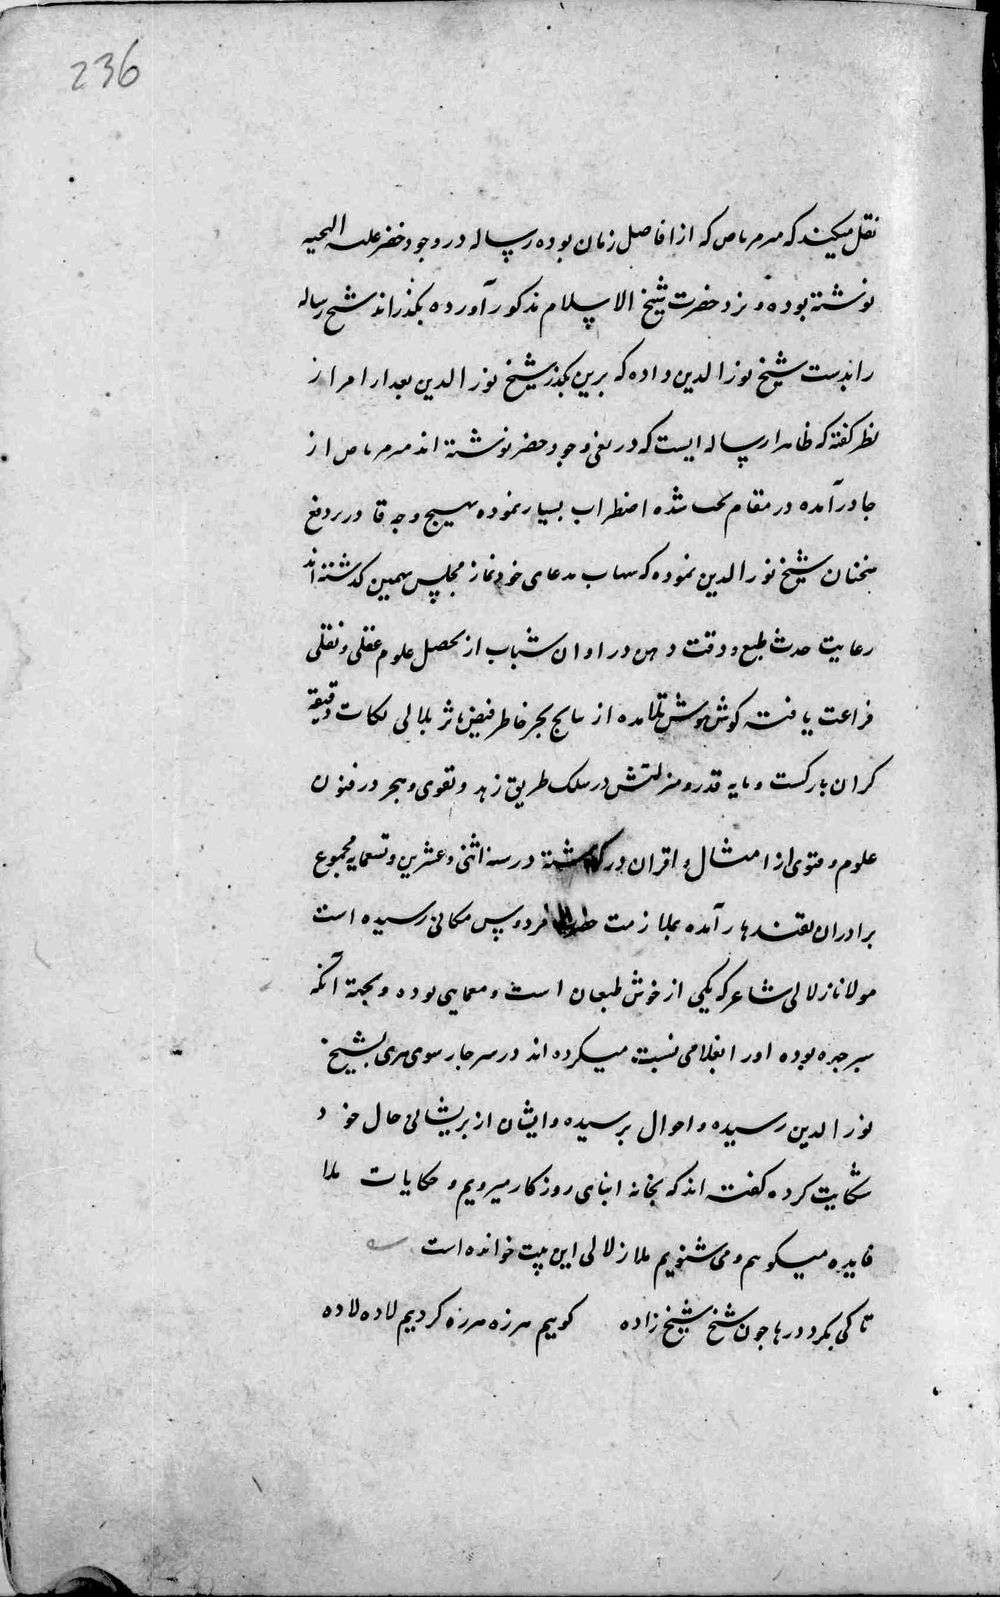 236
نقل میکنند که میر مرتاض که از افاضل زمان بوده رساله در وجود خضر علیه التحیه
نوشته بوده و نزد حضرت شیخ الاسلام مذکور آورده بگذراند شیخ رساله
را بدست شیخ نور الدین داده که برین بگذر شیخ نور الدین بعد از امرار
نظر گفته که ظاهرا رساله ایست که در نفی وجود خضر نوشته اند میر مرتاض از
جا درآمده در مقام بحث شده اضطراب بسیار نموده بهیچ وجه قادر بر دفع
سخنان شیخ نور الدین نموده که مدعای خود نماز مجلس همین گذشته اند
رعایت حدت طبع و دقت ذهن در اوان شباب از تحصیل علوم عقلی و نقلی
فراغت یافته گوش هوش تلامذه از بحر خاطر فیض مآثر بلالی نکات دقیقه
گران بار گشت و پایه قدر و منزلتش در سلک طریق زهد و تقوی و تبحر در فنون
علوم و فتوی از امثال و اقران در گذشته در سنه اثنی و عشرین و تسعمایه مجموع
برادران بقندهار آمده بملازمت حضرت فردوس مکانی رسیده است
مولانا زلالی شاعر که یکی از خوش طبعان است و معمایی بوده و بجهة آنکه
سیه چرده بوده او را بغلامی نسبت میکرده اند در سر چار سوی هری بشیخ
نور الدین رسیده و احوال پرسیده و ایشان از پریشانی حال خود
شکایت کرده گفته اند که بخانه ابنای روزگار میرویم و حکایات بلا
فایده میگوییم و می شنویم ملا زلالی این بیت خوانده است
تا کی بگرد درها چون شیخ شیخ زاده گوییم هرزه هرزه گردیم لاده لاده